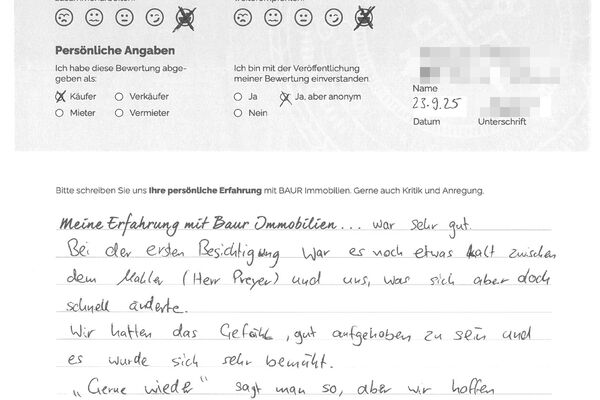 Persönliche Angaben
Ich habe diese Bewertung abge-
geben als:
Käufer Verkäufer
Mieter Vermieter
Ich bin mit der Veröffentlichung
meiner Bewertung einverstanden.
Ja Ja, aber anonym
Nein
Name
23.9.25
Datum Unterschrift
Bitte schreiben Sie uns Ihre persönliche Erfahrung mit BAUR Immobilien. Gerne auch Kritik und Anregung.
Meine Erfahrung mit Baur Immobilien... war sehr gut.
Bei der ersten Besichtigung war es noch etwas kalt zwischen
dem Makler (Herr Preyer) und uns, was sich aber doch
schnell änderte.
Wir hatten das Gefühl, gut aufgehoben zu sein und
es wurde sich sehr bemüht.
„Gerne wieder" sagt man so, aber wir hoffen